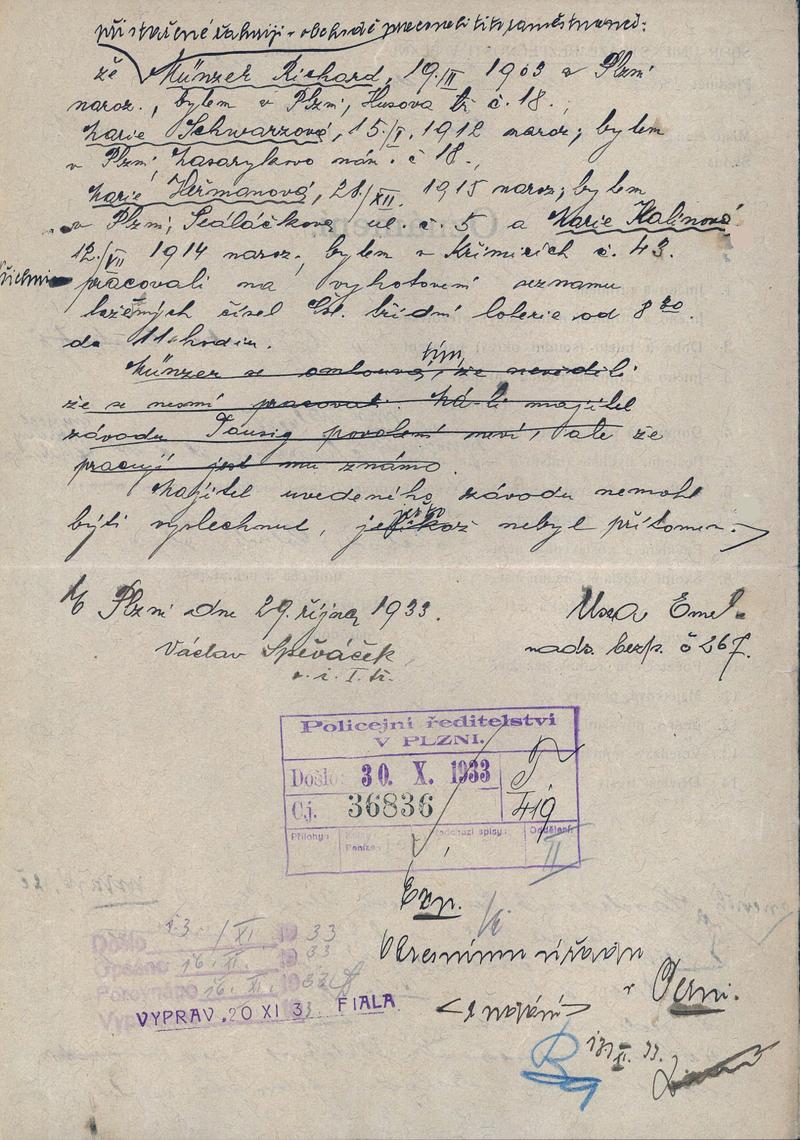 že Münzer Richard, 19./III 1903 v Plzni
naroz., bytem v Plzni, Husova tř. č. 18.,
Marie Schwarzová, 15./V. 1912 naroz., bytem
v Plzni, Masarykovo nám. č 18.,
Marie Heřmanová, 28./XII. 1915 naroz., bytem
v Plzni, Sedláčkova ul. č. 5 a Marie Kalinová
12./VII 1914 naroz., bytem v Křimicích č. 43.
všichni pracovali na vyhotovení seznamu
tažených čísel čsl. třídní loterie od 8 30.
do 11 hodin.
tím,
Münzer se omlouvá, že nevěděli
že se nesmí pracovat. Má-li majitel
závodu Taussig povolení neví, ale že
pracují jest mu známo.
Majitel uvedeného závodu nemohl
býti vyslechnut, nebyl přítomen.
V Plzni dne 29. října 1933.
Václav Spěváček,
nadstr. bezp. č 267.
Policejní ředitelství
V PLZNI.
Došlo: 30. X. 1933
Čj. 36836
419
Přílohy:
Oddělení:
II
Exp.
Okresnímu úřadu
v Plzni.
Došlo 13/XI 1933
Opsáno 16. XI. 1933
Porovnáno 16. XI. 1933
VYPRAV. 20 XI 33 FIALA